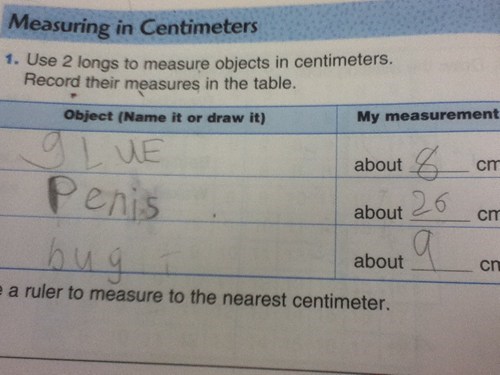 Measuring in Centimeters
1. Use 2 longs to measure objects in centimeters.
Record their measures in the table.
Object (Name it or draw it) My measurement
gLUE about 8 cm
Penis about 26 cm
bug about 9 cm
a ruler to measure to the nearest centimeter.